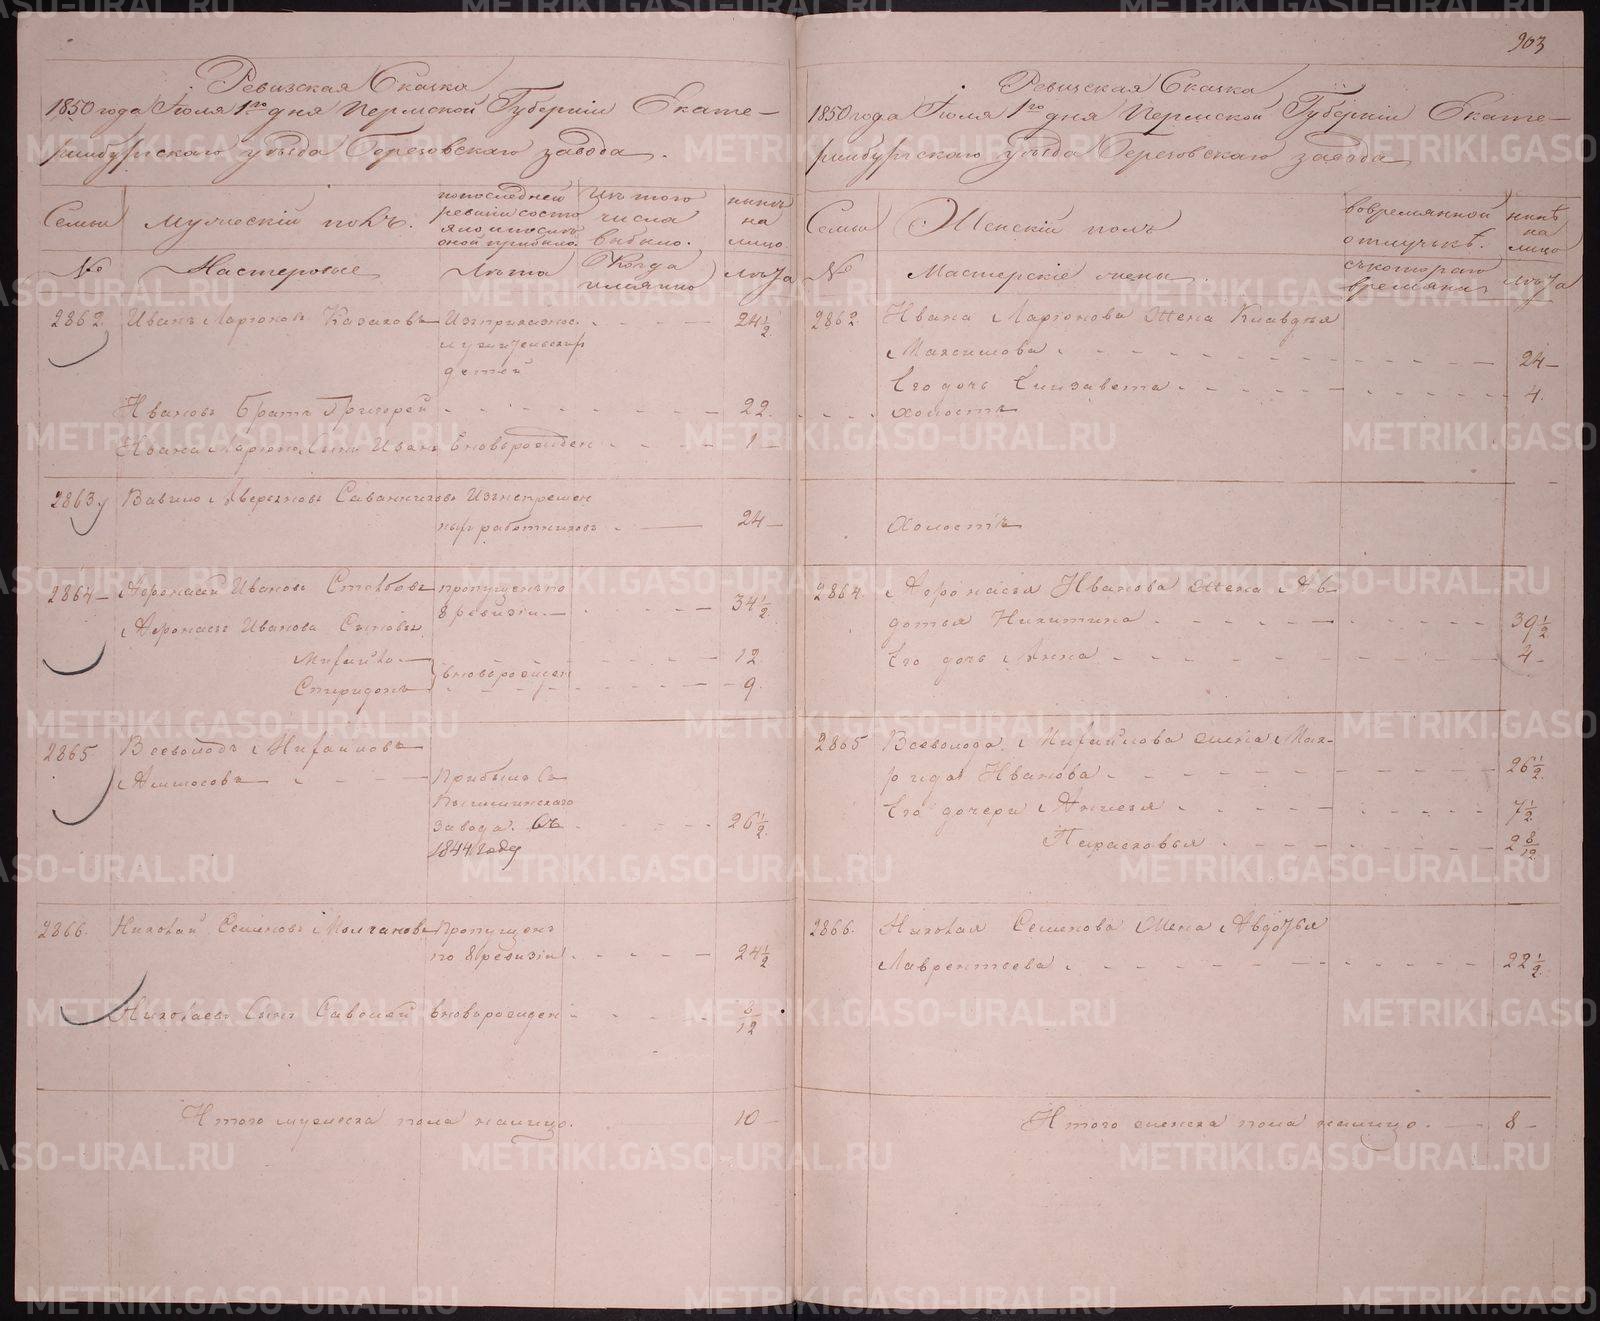 Ревизская Сказка
1850 года Іюля 1го дня Пермской Губерніи Екате-
ринбургскаго уѣзда Березовскаго завода.
Семьи
Мужескій полъ.
по последней
ревизіи состо
яло и послѣ
оной прибыло.
Изъ того
числа
выбыло.
нынѣ
на
лицо
№
Мастеровые
Лѣта
Когда
имянно
Лѣта
2862.
Иванъ Ларіоновъ Казаковъ
Изъ приказнос
лужительских
детей
24 1/2
Ивановъ братъ Григорей
22.
Ивана Ларіона Сынъ Иванъ вновьрожден
1
2863
Вавило Аверьяновъ Саванниковъ Изъ непремен
ных работниковъ
24
2864
Афонасей Ивановъ Столбовъ
пропущенъ по
8 ревизіи.
34 1/2
Афонасья Иванова Сыновья
Михайло
12
вновьрожден
Спиридонъ
9.
2865
Всеволодъ Михаиловъ
Аммосовъ
Прибылъ Съ
Кыштымскаго
завода. Въ
1844 году
26 1/2
2866.
Николай Семеновъ Молчановъ
Пропущенъ
по 8 ревизіи
24 1/2
Николаевъ Сынъ Савватей вновьрожден
8/12
Итого мужеска пола налицо.
10
903
Ревизская Сказка
1850 года Іюля 1го дня Пермской Губерніи Екате-
ринбургскаго уѣзда Березовскаго завода
Семьи
Женскій полъ
вовремянной
отлучькѣ.
нынѣ
на
лицо
№
Мастерскіе жены.
съкотораго
времяни
Лѣта
2862
Ивана Ларіонова Жена Клавдѣя
Максимова
24
Его дочь Елизавета
4.
холостъ
Холостъ
2864.
Афонасья Иванова Жена Ав-
дотья Никитина
39 1/2
Его дочь Анна
4
2865
Всеволода Михайлова жена Мар-
рида Иванова
26 1/2
Его дочери Анисья
7 1/2
Парасковья
2 8/12
2866.
Николая Семенова Жена Авдотья
Лаврентьева
22 1/2
Итого женска пола налицо.
8
METRIKI.GASO-URAL.RU